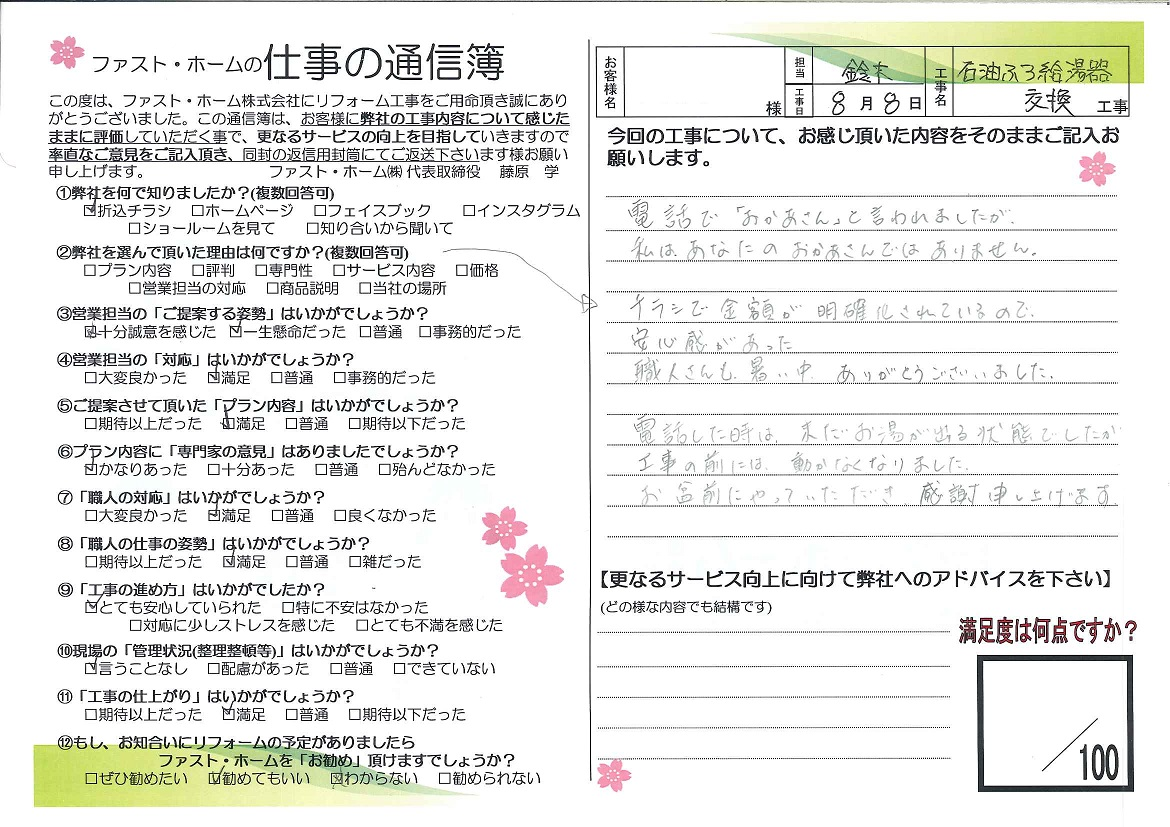 ファスト・ホームの仕事の通信簿
この度は、ファスト・ホーム株式会社にリフォーム工事をご用命頂き誠にあり
がとうございました。この通信簿は、お客様に弊社の工事内容について感じた
ままに評価していただく事で、更なるサービスの向上を目指していきますので
率直なご意見をご記入頂き、同封の返信用封筒にてご返送下さいます様お願い
申し上げます。 ファスト・ホーム㈱ 代表取締役 藤原 学
①弊社を何で知りましたか?(複数回答可)
☑折込チラシ □ホームページ □フェイスブック □インスタグラム
□ショールームを見て □知り合いから聞いて
②弊社を選んで頂いた理由は何ですか?(複数回答可)
□プラン内容 □評判 □専門性 □サービス内容 □価格
□営業担当の対応 □商品説明 □当社の場所
③営業担当の「ご提案する姿勢」はいかがでしょうか?
☑十分誠意を感じた ☑一生懸命だった □普通 □事務的だった
④営業担当の「対応」はいかがでしょうか?
□大変良かった ☑満足 □普通 □事務的だった
⑤ご提案させて頂いた「プラン内容」はいかがでしょうか?
□期待以上だった ☑満足 □普通 □期待以下だった
⑥プラン内容に「専門家の意見」はありましたでしょうか?
☑かなりあった □十分あった □普通 □殆んどなかった
⑦「職人の対応」はいかがでしょうか?
□大変良かった ☑満足 □普通 □良くなかった
⑧「職人の仕事の姿勢」はいかがでしょうか?
□期待以上だった ☑満足 □普通 □雑だった
⑨「工事の進め方」はいかがでしたか?
☑とても安心していられた □特に不安はなかった
□対応に少しストレスを感じた □とても不満を感じた
⑩現場の「管理状況(整理整頓等)」はいかがでしょうか?
☑言うことなし □配慮があった □普通 □できていない
⑪「工事の仕上がり」はいかがでしょうか?
□期待以上だった ☑満足 □普通 □期待以下だった
⑫もし、お知合いにリフォームの予定がありましたら
ファスト・ホームを「お勧め」頂けますでしょうか?
□ぜひ勧めたい ☑勧めてもいい ☑わからない □勧められない
お客様名 様 担当 鈴木 工事日 8月8日 工事名 石油ふろ給湯器
交換 工事
今回の工事について、お感じ頂いた内容をそのままご記入お
願いします。
電話で「おかあさん」と言われましたが、
私は、あなたのおかあさんではありません。
チラシで金額が明確化されているので、
安心感があった
職人さんも、暑い中、ありがとうございました。
電話した時は、まだお湯が出る状態でしたが
工事の前には、動かなくなりました。
お盆前にやっていただき、感謝申し上げます
【更なるサービス向上に向けて弊社へのアドバイスを下さい】
(どの様な内容でも結構です)
満足度は何点ですか?
/100